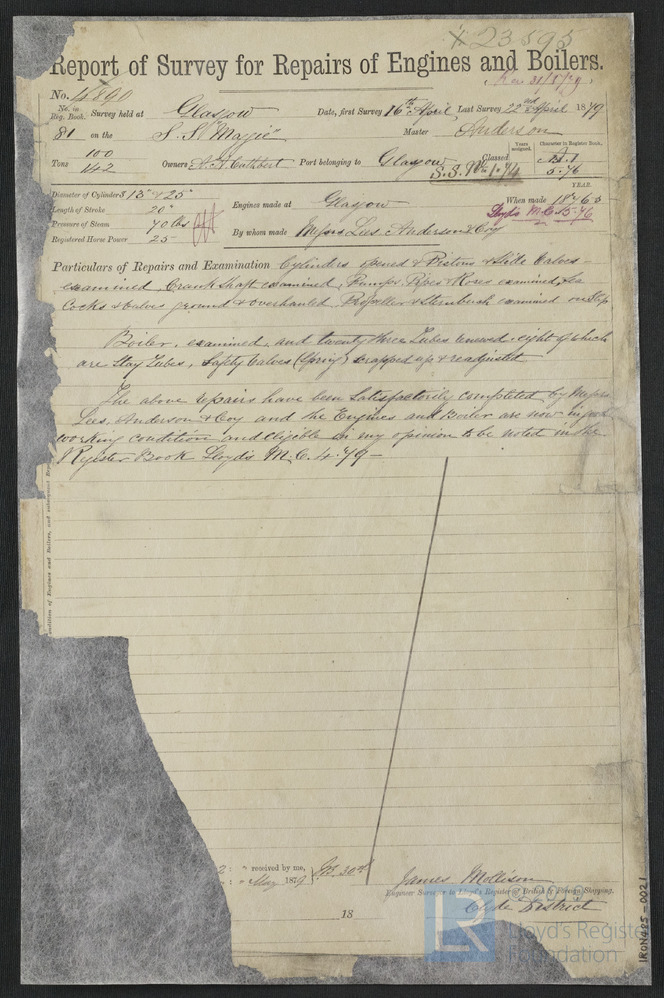 23595
Report of Survey for Repairs of Engines and Boilers.
Rec 31/5/79
No. 4890
No. in Reg. Book. Survey held at Glasgow Date, first Survey 16th April Last Survey 22nd April 1879
81 on the S.S. "Magie" Master Anderson
Tons 100 142 Owners Cuthbert Port belonging to Glasgow Classed Years assigned. Character in Register Book, A.1 5.76
S.S. No 1.74
Diameter of Cylinders 13" & 25" Engines made at Glasgow When made YEAR.
Length of Stroke 20" Lloyd's M.C. 5.76
Pressure of Steam 70 lbs By whom made Messrs Lees, Anderson & Coy
Registered Horse Power 25
Particulars of Repairs and Examination Cylinders opened & Pistons & Slide Valves
examined, Crank shaft examined, Pumps, Pipes & Roses examined, Sea
Cocks & valves ground & overhauled, Propeller & Sternbush examined on Slip
Boiler, examined, and twenty three Tubes renewed, eight of which
are Stay Tubes, Safety Valves (Spring) scrapped up & readjusted
The above repairs have been Satisfactorily completed by Messrs
Lees, Anderson & Coy and the Engines and Boiler are now in good
working condition and Eligible in my opinion to be noted in the
Register Book Lloyd's M.C. 4.79
ondition of Engines and Boilers, and subsequent
2 : " received by me,
May 1879
James Mollison
Engineer Surveyor to Lloyd's Register of British & Foreign Shipping.
Clyde District
13
LR Lloyd's Register Foundation
IRON485-0021